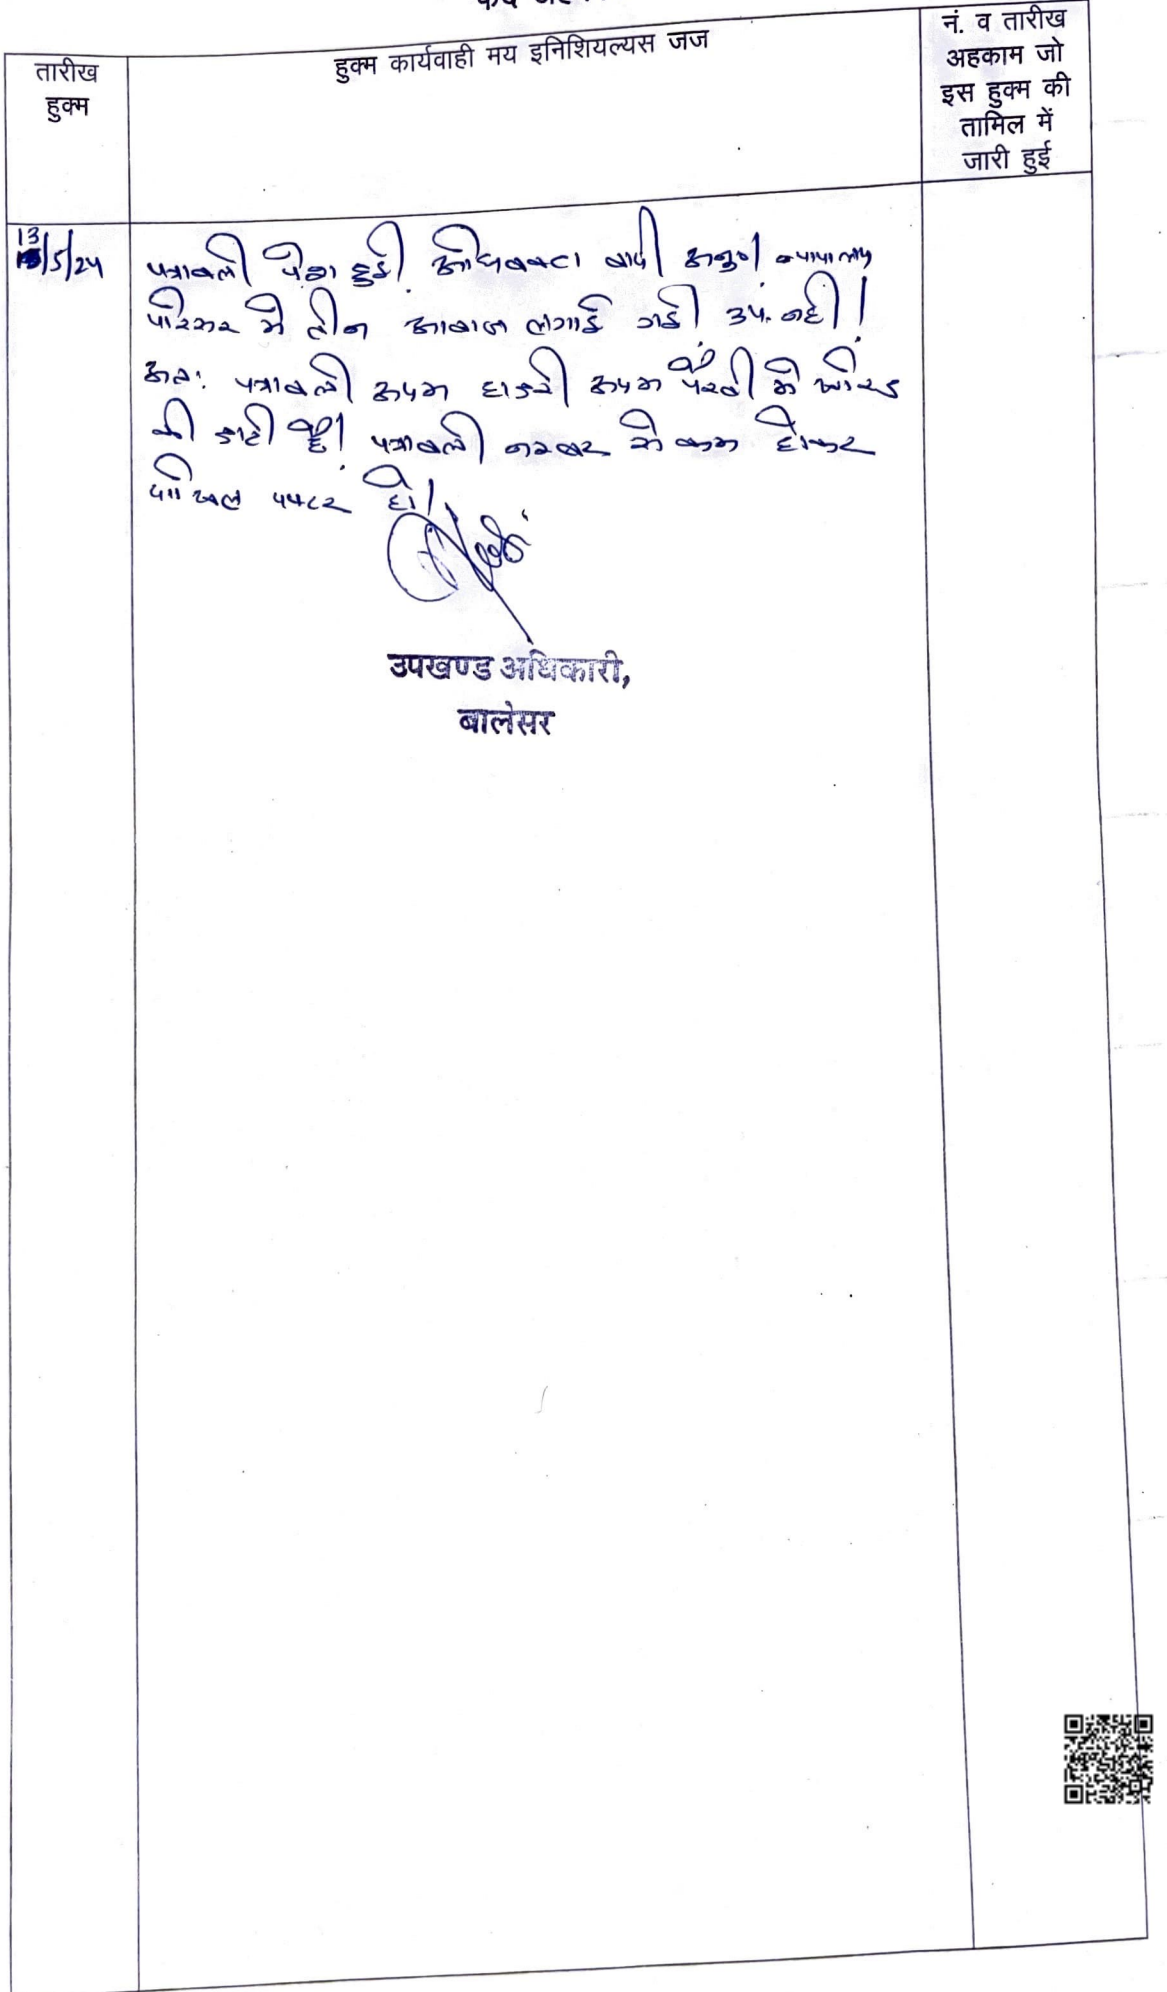 तारीख
हुक्म
हुक्म कार्यवाही मय इनिशियल्यस जज
नं. व तारीख
अहकाम जो
इस हुक्म की
तामिल में
जारी हुई
13/5/24
पत्रावली पेश हुई। अधिवक्ता वादी अनु०। न्यायालय
परिसर में तीन आवाज लगाई गई। उप. नहीं।
अतः पत्रावली अदम हाजरी अदम पैरवी में खारिज
की जाती है। पत्रावली नम्बर से कम होकर
दाखिल दफ्तर हो।
उपखण्ड अधिकारी,
बालेसर